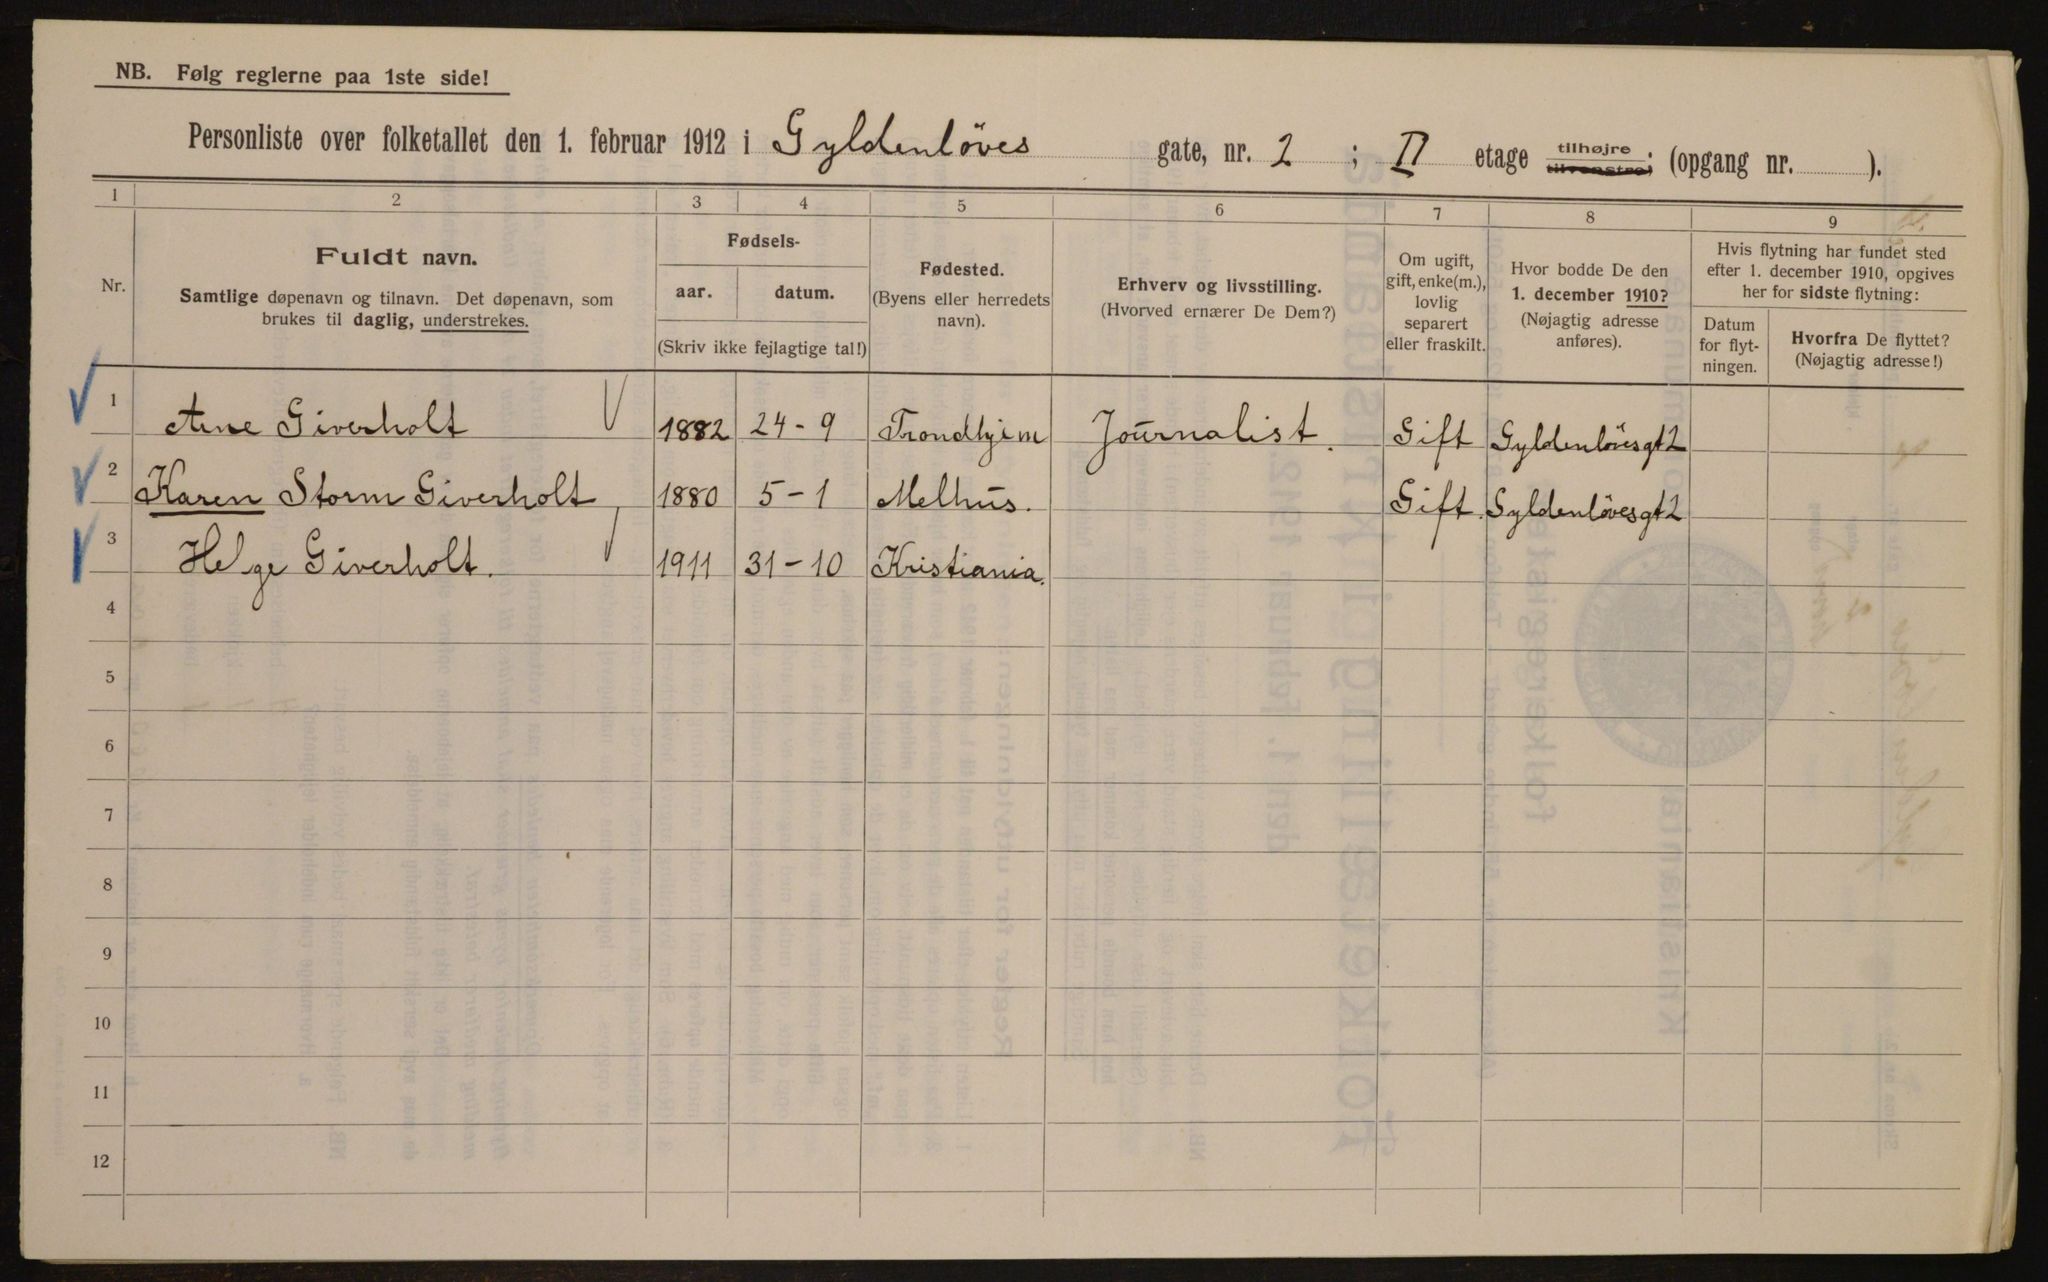 NB. Følg reglerne paa 1ste side!
Personliste over folketallet den 1. februar 1912 i Gyldenløves gate, nr. 2 ; II etage tilhøjre tilvenstre; (opgang nr. ).
1 2 3 4 5 6 7 8 9
Nr.
Fuldt navn.
Samtlige døpenavn og tilnavn. Det døpenavn, som
brukes til daglig, understrekes.
Fødsels-
aar. datum.
(Skriv ikke fejlagtige tal!)
Fødested.
(Byens eller herredets
navn).
Erhverv og livsstilling.
(Hvorved ernærer De Dem?)
Om ugift,
gift, enke(m.),
lovlig
separert
eller fraskilt.
Hvor bodde De den
1. december 1910?
(Nøjagtig adresse
anføres).
Hvis flytning har fundet sted
efter 1. december 1910, opgives
her for sidste flytning:
Datum
for flyt-
ningen.
Hvorfra De flyttet?
(Nøjagtig adresse!)
1 Arne Giverholt 1882 24-9 Trondhjem Journalist. Gift Gyldenløvesgt 2
2 Karen Storm Giverholt 1880 5-1 Melhus. Gift. Gyldenløvesgt 2
3 Helge Giverholt. 1911 31-10 Kristiania.
4
5
6
7
8
9
10
11
12